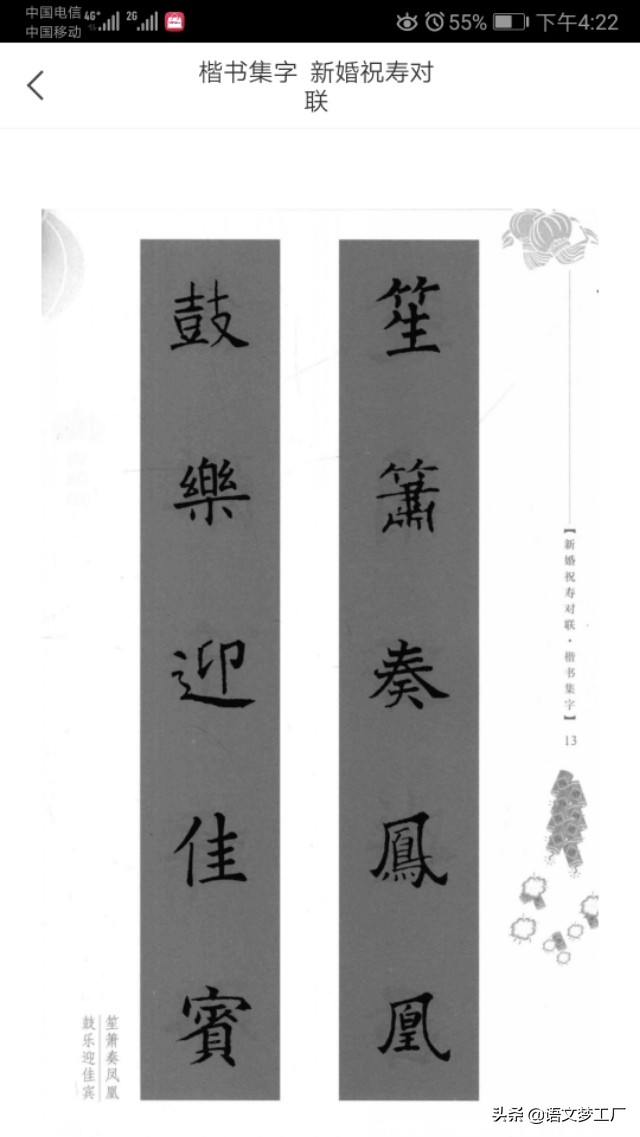 中国电信
中国移动
4G+
2G
55%
下午4:22
楷书集字 新婚祝寿对
联
笙簫奏鳳凰
鼓樂迎佳賓
【新婚祝寿对联·楷书集字】
13
笙箫奏凤凰
鼓乐迎佳宾
头条 @语文梦工厂